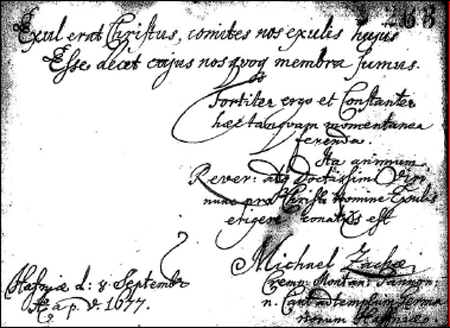 263
Exul erat Christus, comites nos exulis hujus
Esse decet cujus nos quoq membra sumus.
Fortiter ergo et Constanter
haec tanquam momentanea
ferenda.
Ita animum
Rever: atq Doctissimi Viri
nunc pro Christi Nomine Exulis
erigere conatus est
Michael Zachæi
Cremn: Montan: Pannon:
n. Cant ad templum Germa
norum Hafniæ
Hafniæ d: 8 Septembr
A p. 1677.